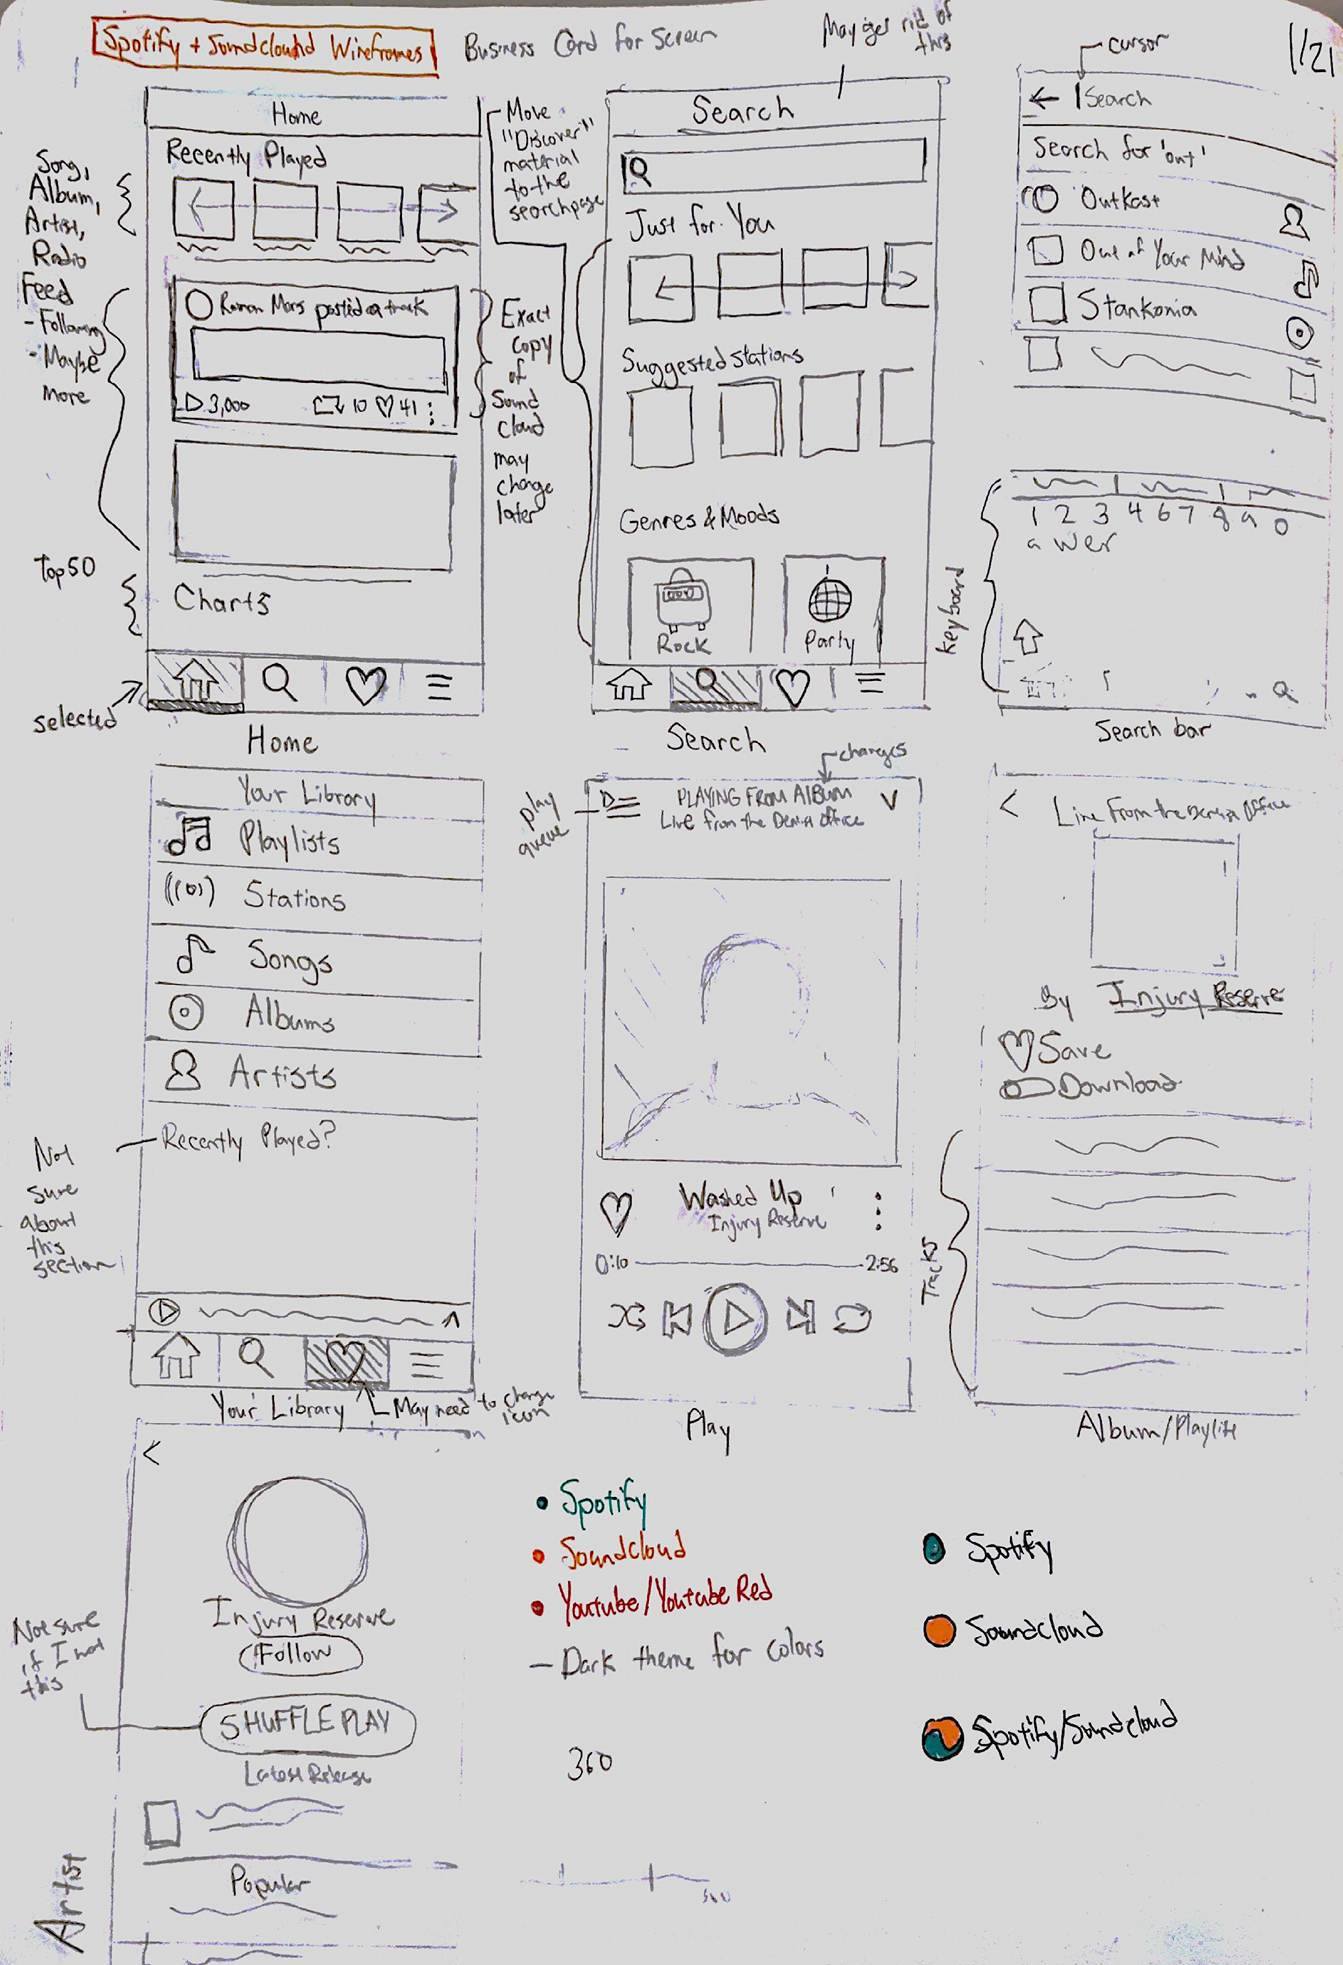 Spotify + Soundclound Wireframes
Business Card for Screen
May get rid of
this
cursor
1/21
Home
Recently Played
Song,
Album,
Artist,
Radio
Feed
- Following
- Maybe
more
Roman Mars posted a track
3,000
10
41
Top50
Charts
selected
Home
Move
"Discover"
material
to the
searchpage
Exact
copy
of
Sound
cloud
may
change
later
Search
Just for You
Suggested Stations
Genres & Moods
Rock
Party
Search
Search
Search for 'out'
Outkast
Out of Your Mind
Stankonia
1 2 3 4 6 7 8 9 0
a wer
Keyboard
Search bar
Your Library
Playlists
Stations
Songs
Albums
Artists
Recently Played?
Not
sure
about
this
section
Your Library
May need to change
icon
changes
play
queue
PLAYING FROM ALBUM
Live from the Dentist Office
V
Washed Up
Injury Reserve
0:10
2:56
Play
<
Live From the Dentist Office
By Injury Reserve
Save
Download
Tracks
Album/Playlist
<
Injury Reserve
Follow
SHUFFLE PLAY
Not sure
if I want
this
Latest Release
Popular
Artist
• Spotify
• Soundcloud
• Youtube/Youtube Red
- Dark theme for colors
360
Spotify
Soundcloud
Spotify/Soundcloud